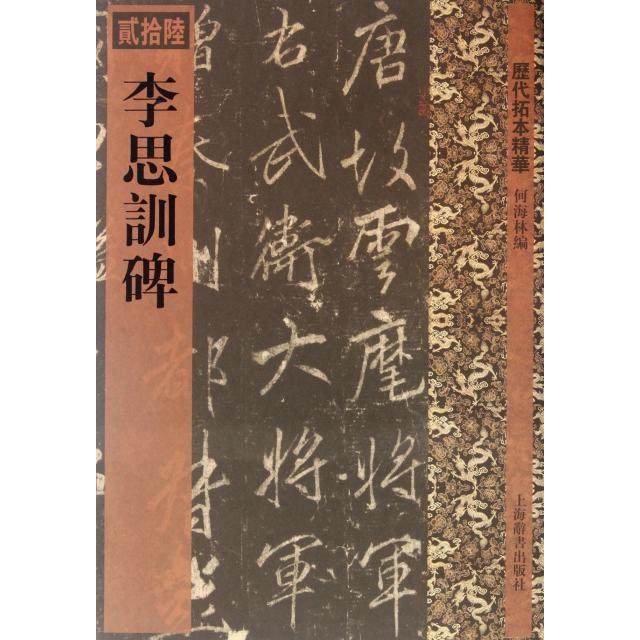 歷代拓本精華
何海林编
上海辭書出版社
唐故雲麾將軍
右武衛大將軍
貳拾陸
李思訓碑